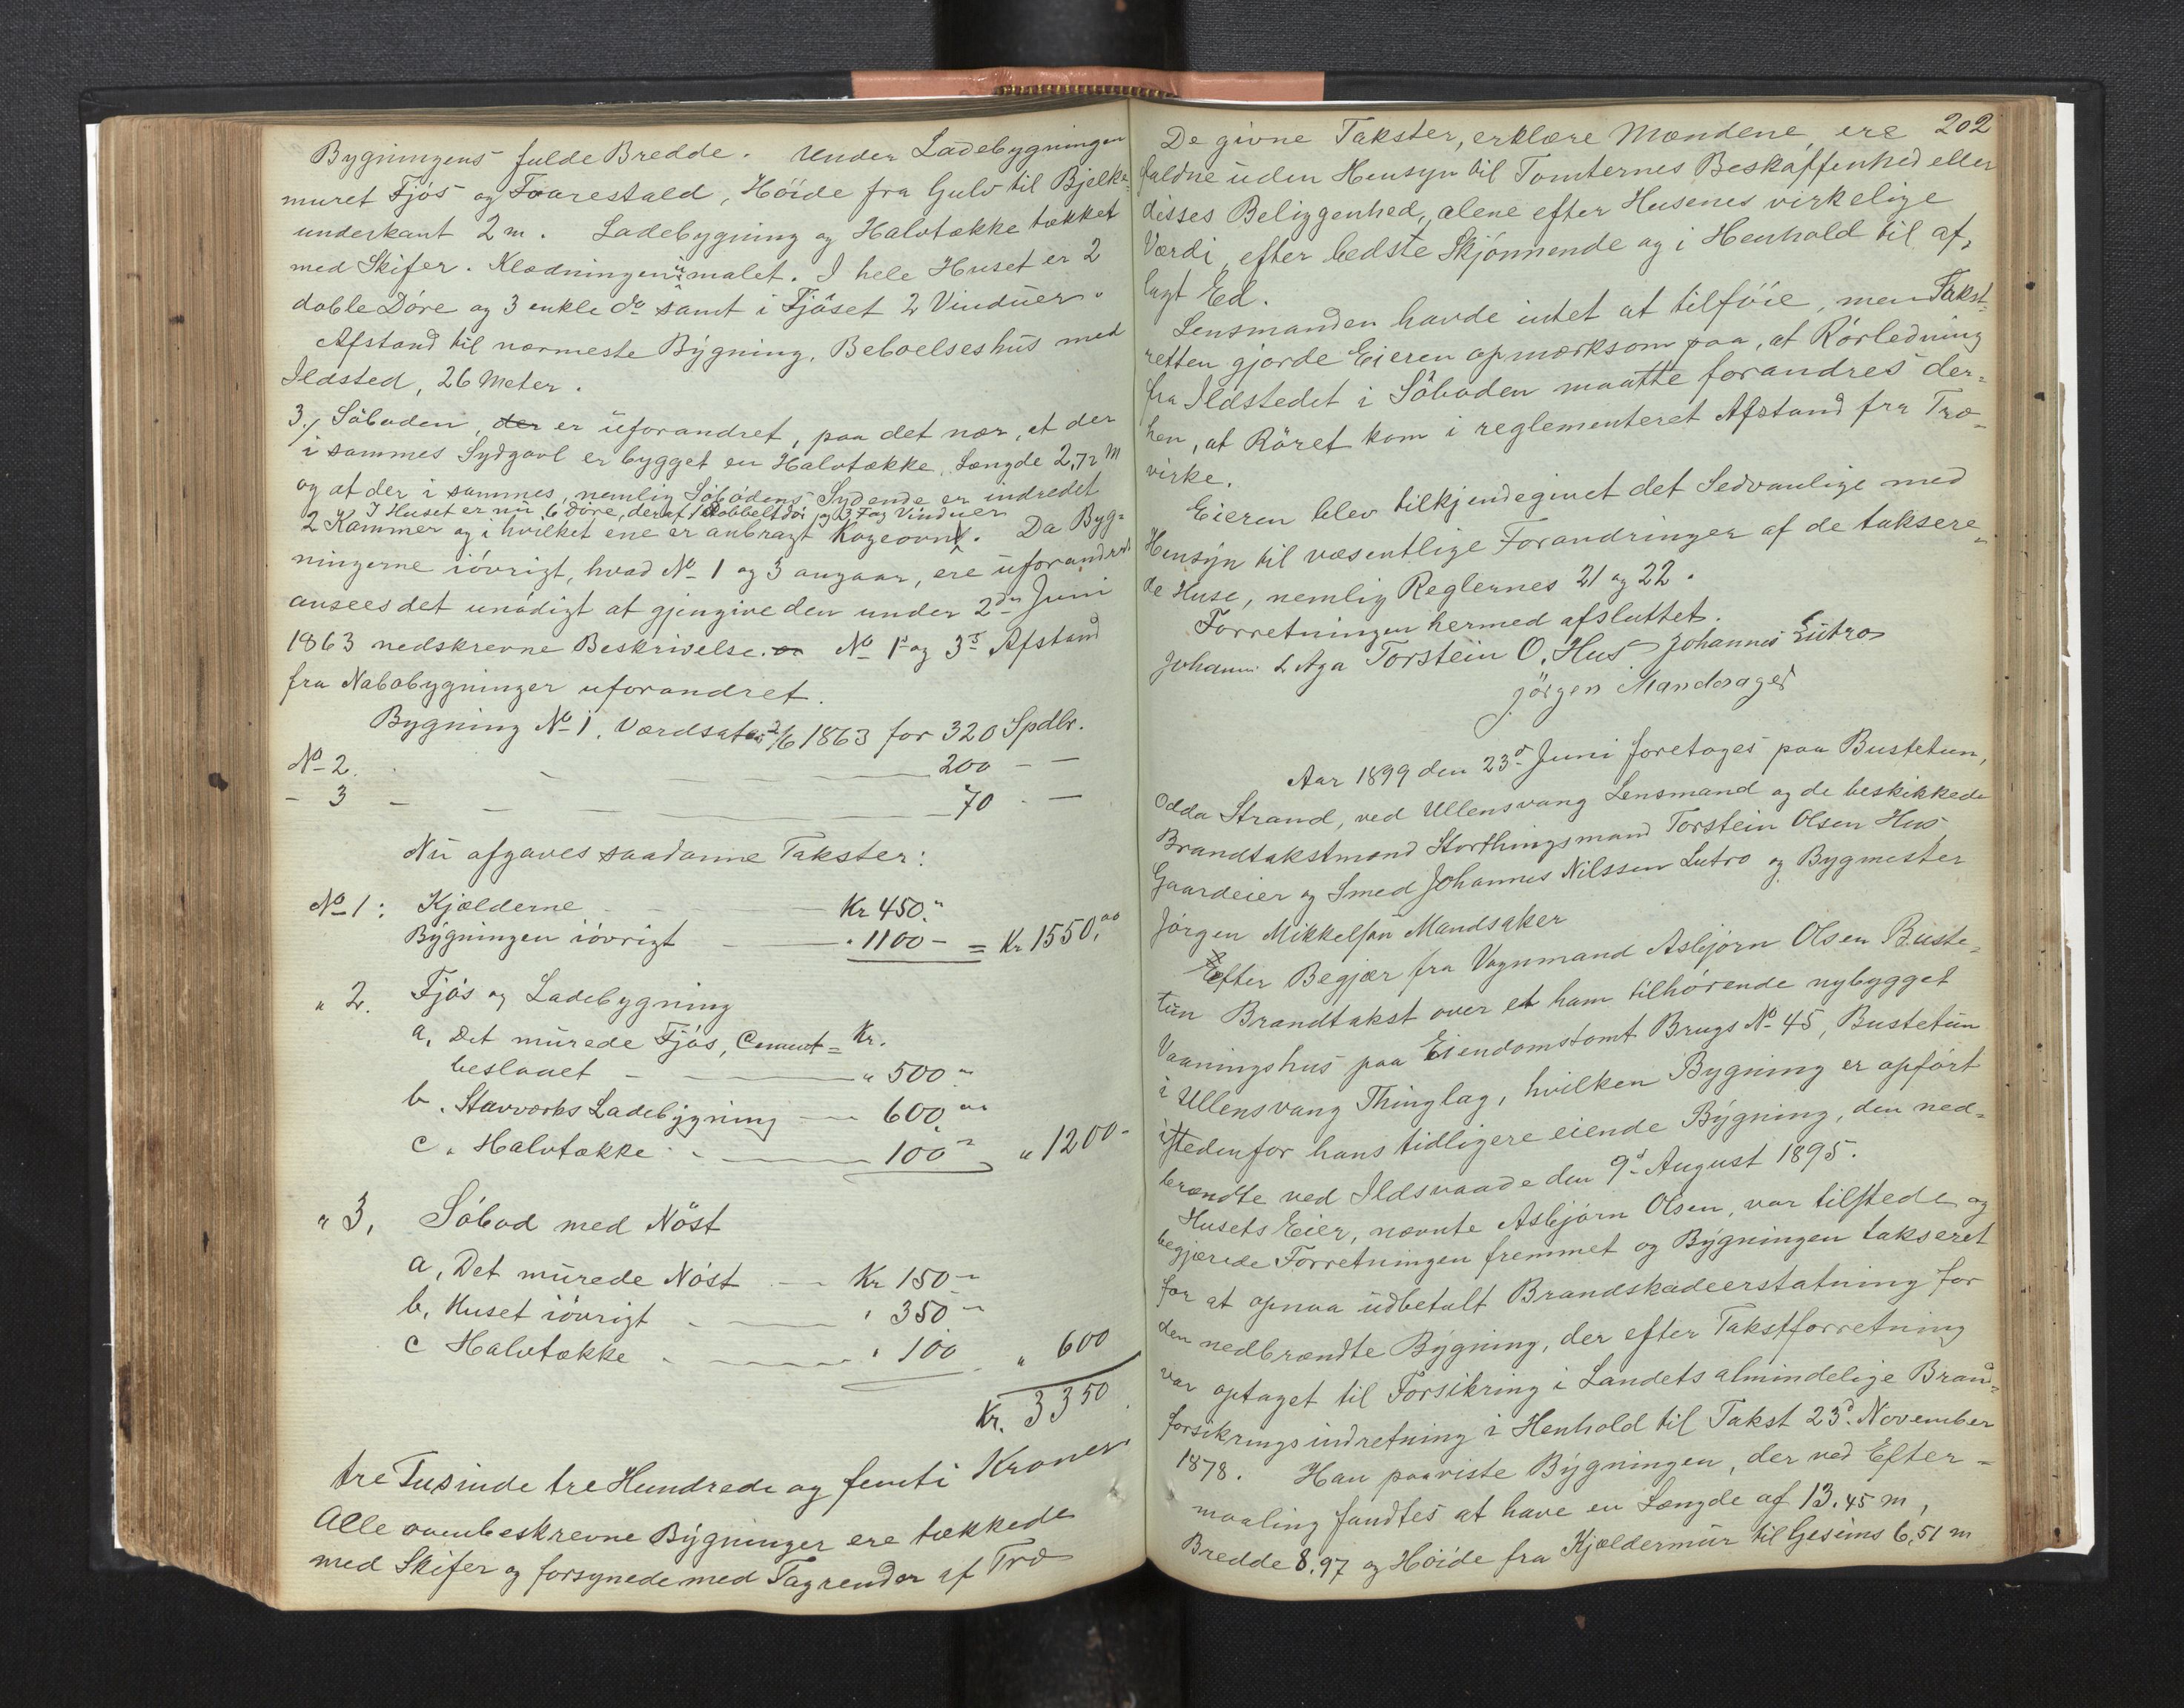 Bygningens fulde Bredde. Under Ladebygningen
muret Fjøs og Faarestald, Høide fra Gulv til Bjelke=
underkant 2 m. Ladebygning og Halvtække tækket
med Skifer. Klædningen malet. I hele Huset er 2
doble Døre og 3 enkle do samt i Fjøset 2 Vinduer.
Afstand til nærmeste Bygning, Beboelseshus med
Ildsted, 26 Meter.
3./ Søboden, der er uforandret, paa det nær, at der
i sammes Sydgavl er bygget en Halvtække, Længde 2,72 M
og at der i sammes, nemlig Søbodens Sydende er indredet
I Huset er nu 6 Døre, deraf 1 Dobbeltdør og 3 Fag Vinduer
2 Kammer og i hvilket ene er anbragt Kogeovn. Da Byg=
ningerne iøvrigt, hvad No 1 og 3 angaar, ere uforandret
ansees det unødigt at gjengive den under 2den Juni
1863 nedskrevne Beskrivelse. No 1s og 3s Afstand
fra Nabobygninger uforandret.
Bygning No 1. Værdsat 2/6 1863 for 320 Spdlr.
No 2. — — — 200 — —
- 3 — — — 70 - —
Nu afgaves saadanne Takster:
No 1: Kjælderne — Kr 450."
Bygningen iøvrigt — " 1100 - = Kr 1550,00
" 2. Fjøs og Ladebygning
a, Det murede Fjøs, Cement= Kr.
beslaaet — " 500 "
b. Stavværks Ladebygning — 600,00
c. Halvtække — 100 " " 1200 -
" 3. Søbod med Nøst
a, Det murede Nøst — Kr 150 -
b, Huset iøvrigt — " 350 -
c Halvtække — " 100 " 600
Kr. 3350.
tre Tusinde tre Hundrede og femti Kroner
Alle ovenbeskrevne Bygninger ere tækkede
med Skifer og forsynede med Tagrender af Træ
202
De givne Takster, erklære Mændene, ere
faldne uden Hensyn til Tomternes Beskaffenhed eller
disses Beliggenhed, alene efter Husenes virkelige
Værdi, efter bedste Skjønnende og i Henhold til af=
lagt Ed.
Lensmanden havde intet at tilføie, men Takst=
retten gjorde Eieren opmærksom paa, at Rørledning
fra Ildstedet i Søboden maatte forandres der=
hen, at Røret kom i reglementeret Afstand fra Træ=
virke.
Eieren blev tilkjendegivet det Sedvanlige med
Hensyn til væsentlige Forandringer af de taksere=
de Huse, nemlig Reglernes 21 og 22.
Forretningen hermed afsluttet.
Johann. L Aga Torstein O. Hus Johannes Lutro
Jørgen Mandsager
Aar 1899 den 23d Juni foretoges paa Bustetun,
Odda Strand, ved Ullensvang Lensmand og de beskikkede
Brandtakstmænd Storthingsmand Torstein Olsen Hus,
Gaardeier og Smed Johannes Nilssen Lutro og Bygmester
Jørgen Mikkelsen Mandsaker
Efter Begjær fra Vognmand Asbjørn Olsen Buste=
tun Brandtakst over et ham tilhørende nybygget
Vaaningshus paa Eiendomstomt Brugs No 45, Bustetun
i Ullensvang Thinglag, hvilken Bygning er opført
istedenfor hans tidligere eiende Bygning, den ned=
brændte ved Ildsvaade den 9d August 1895.
Husets Eier, nævnte Asbjørn Olsen, var tilstede og
begjærede Forretningen fremmet og Bygningen takseret
for at opnaa udbetalt Brandskadeerstatning for
den nedbrændte Bygning, der efter Takstforretning
var optaget til Forsikring i Landets almindelige Brand=
forsikringsindretning i Henhold til Takst 23d November
1878. Han paaviste Bygningen, der ved Efter=
maaling fandtes at have en Længde af 13.45 m,
Bredde 8.97 og Høide fra Kjældermur til Gesims 6.51 m